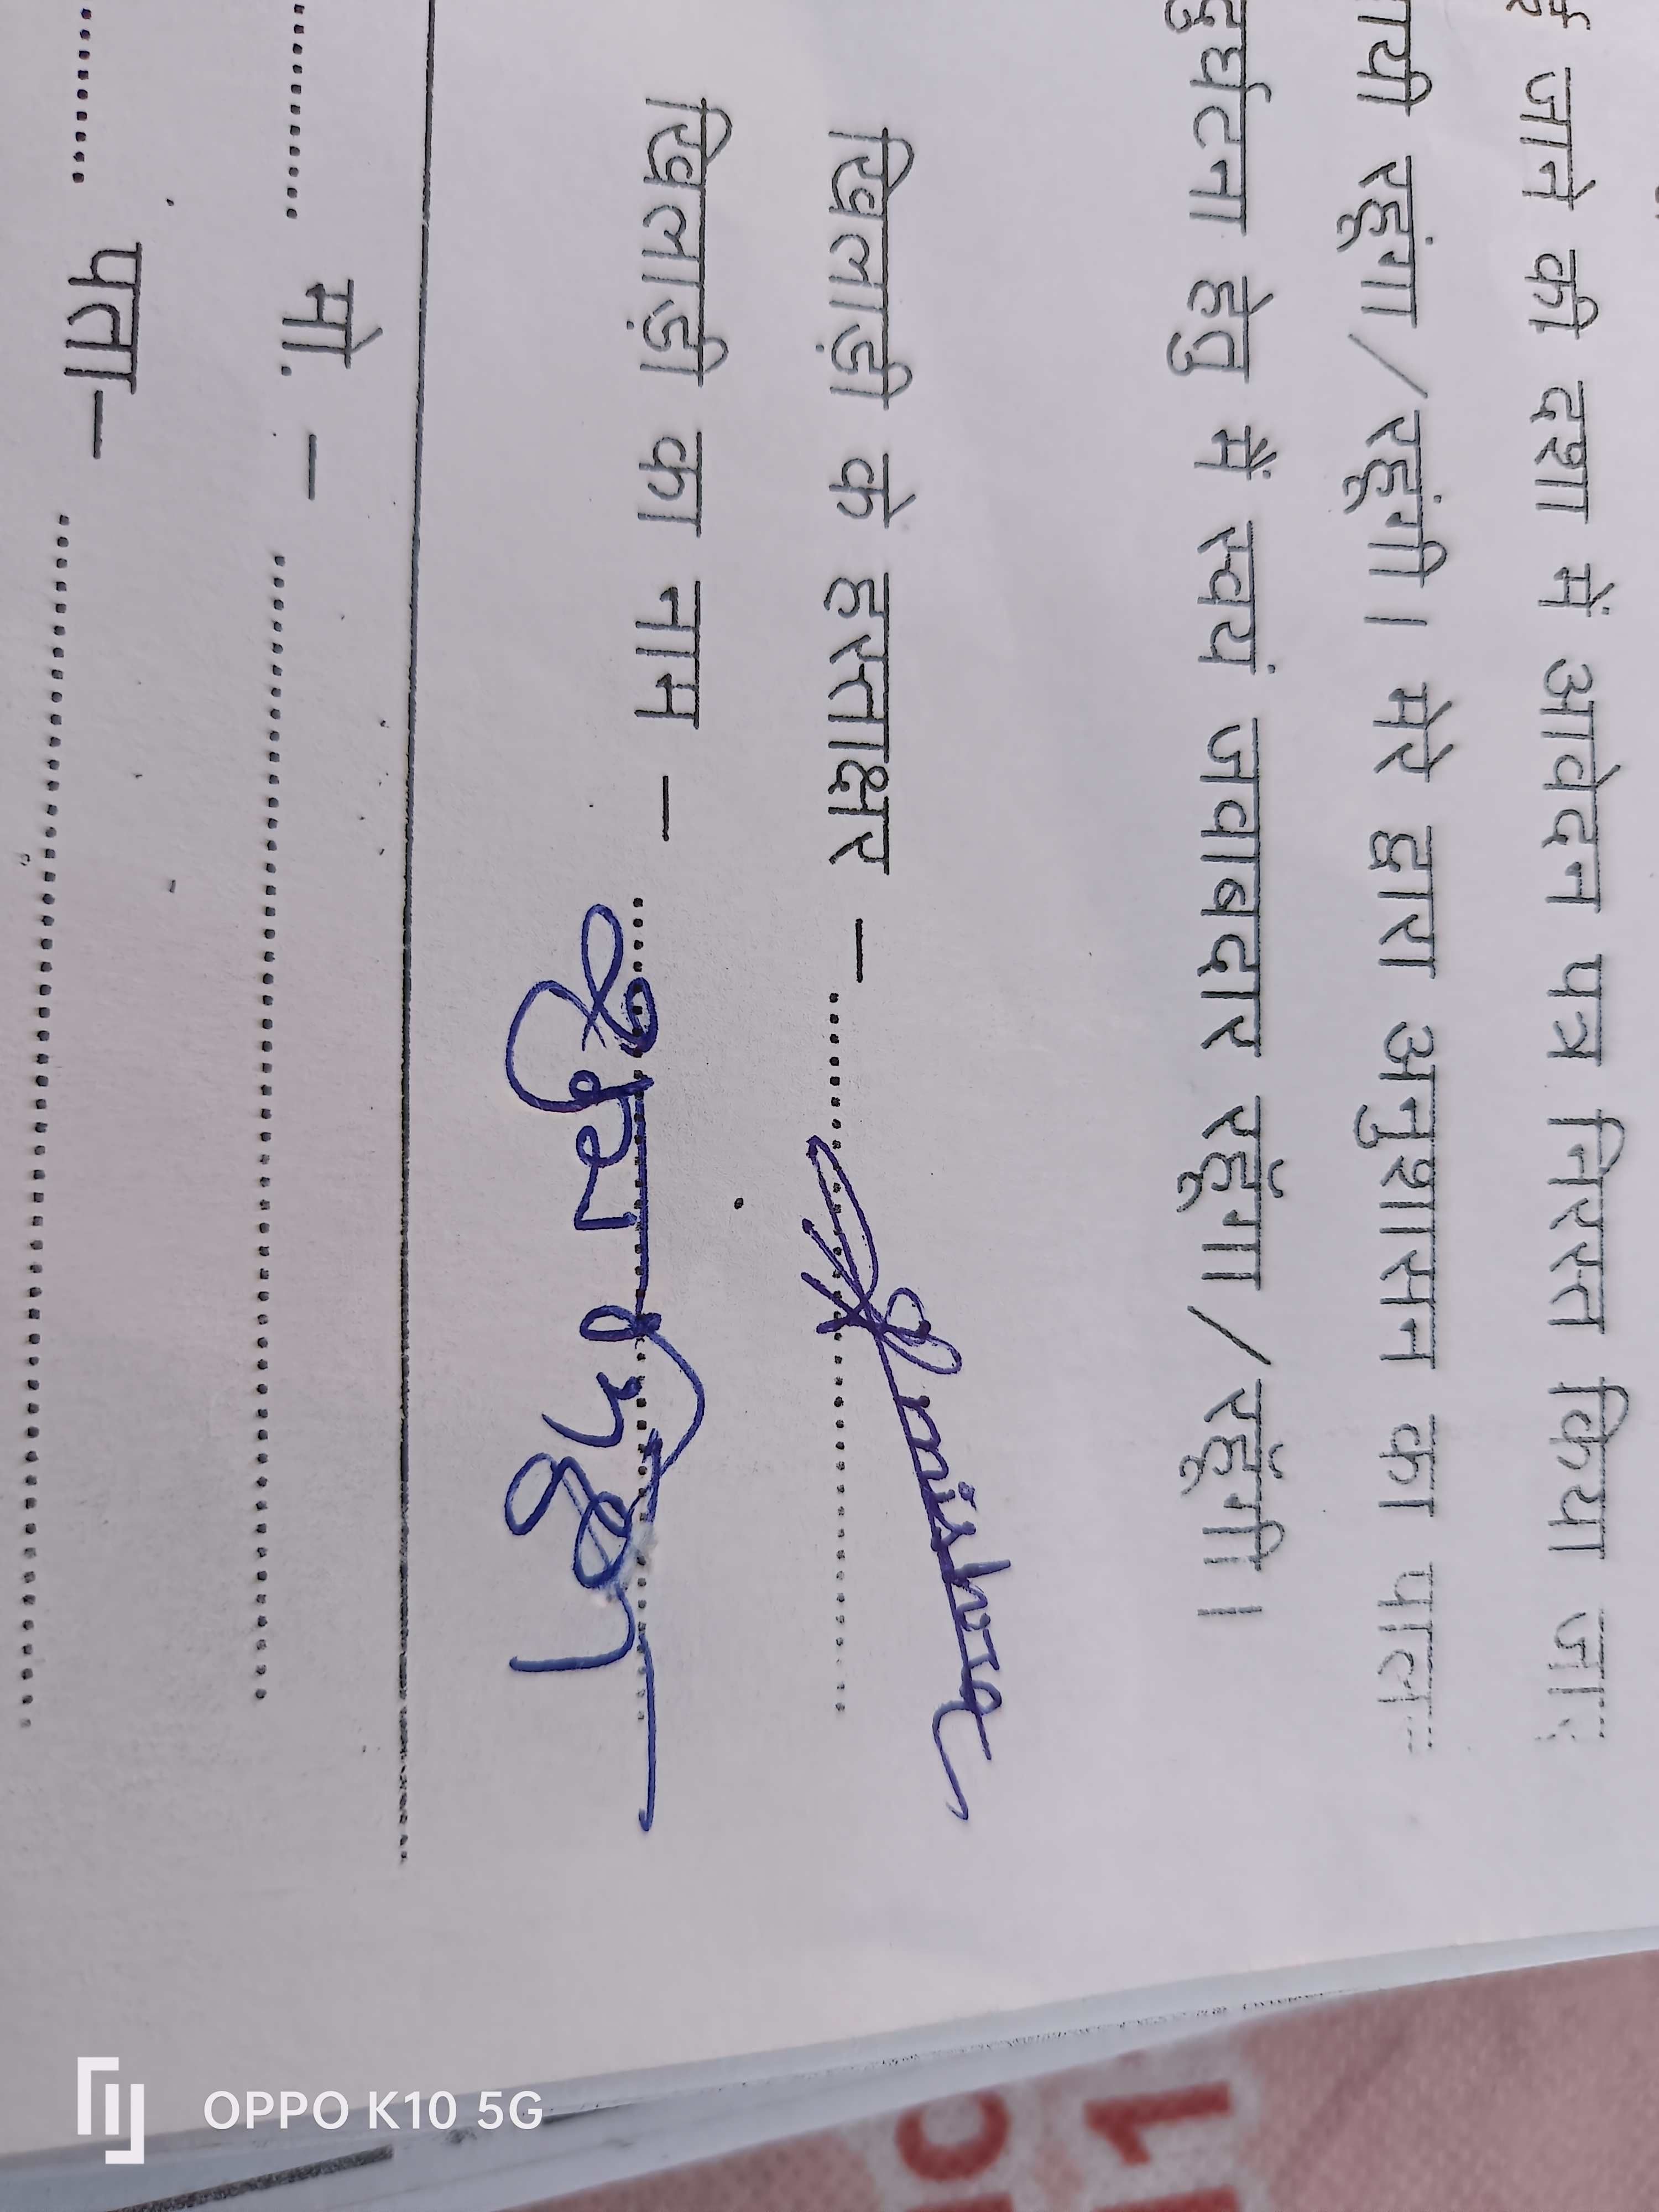 जाने की दशा में आवेदन पत्र निरस्त किया जा
रहूंगा/रहूंगी। मेरे द्वारा अनुशासन का पाल
दुर्घटना हेतु मैं स्वयं जवाबदार रहूँगा/रहूँगी।
खिलाड़ी के हस्ताक्षर –
खिलाड़ी का नाम –
मो. –
पता–
OPPO K10 5G